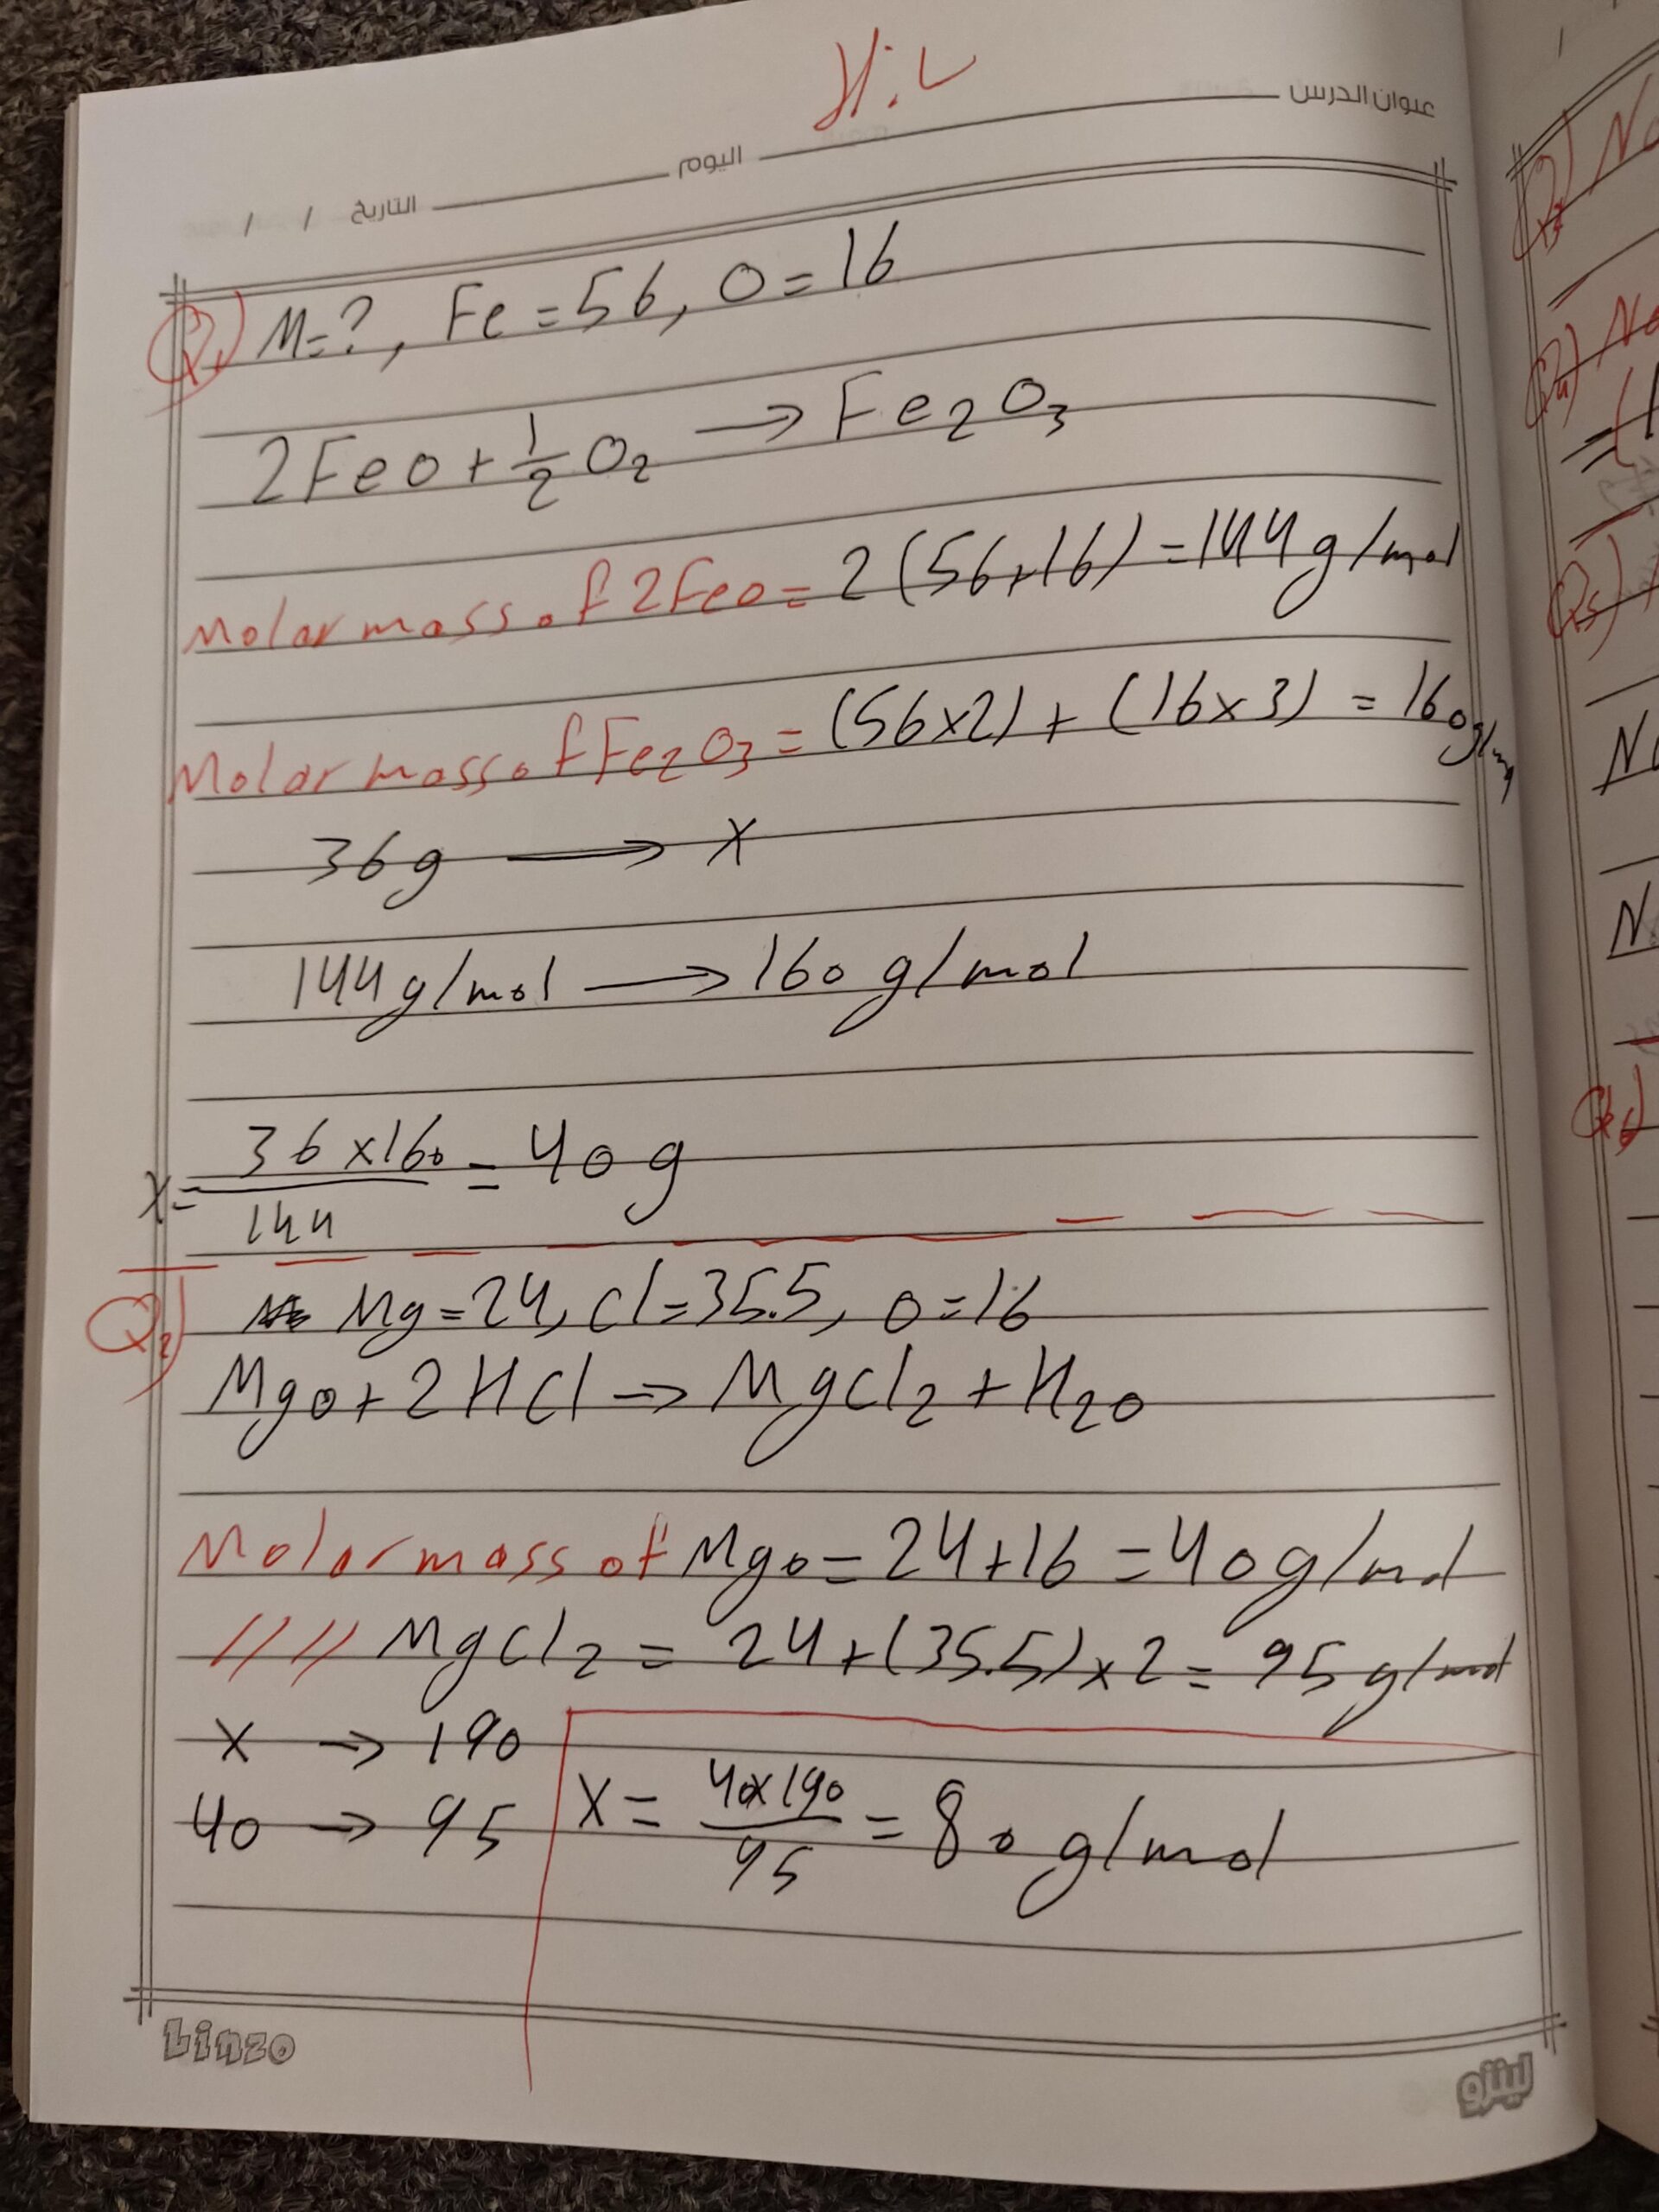 H.W
عنوان الدرس
اليوم
التاريخ / /
Q1) M=?, Fe=56, O=16
2FeO+1/2O2 → Fe2O3
Molar mass of 2FeO= 2(56+16)=144g/mol
Molar mass of Fe2O3=(56x2)+(16x3)=160g/m
36g → X
144g/mol → 160g/mol
X= 36x160/144 = 40g
Q2) Mg=24, Cl=35.5, O=16
MgO+2HCl → MgCl2+H2O
Molar mass of MgO=24+16=40g/mol
//// MgCl2 = 24+(35.5)x2= 95g/mol
X → 190
40 → 95
X= 40x190/95 = 80 g/mol
Linzo
لينزو
Q3) No
Q4) No
=(1
Q5)
No
N
Q6)